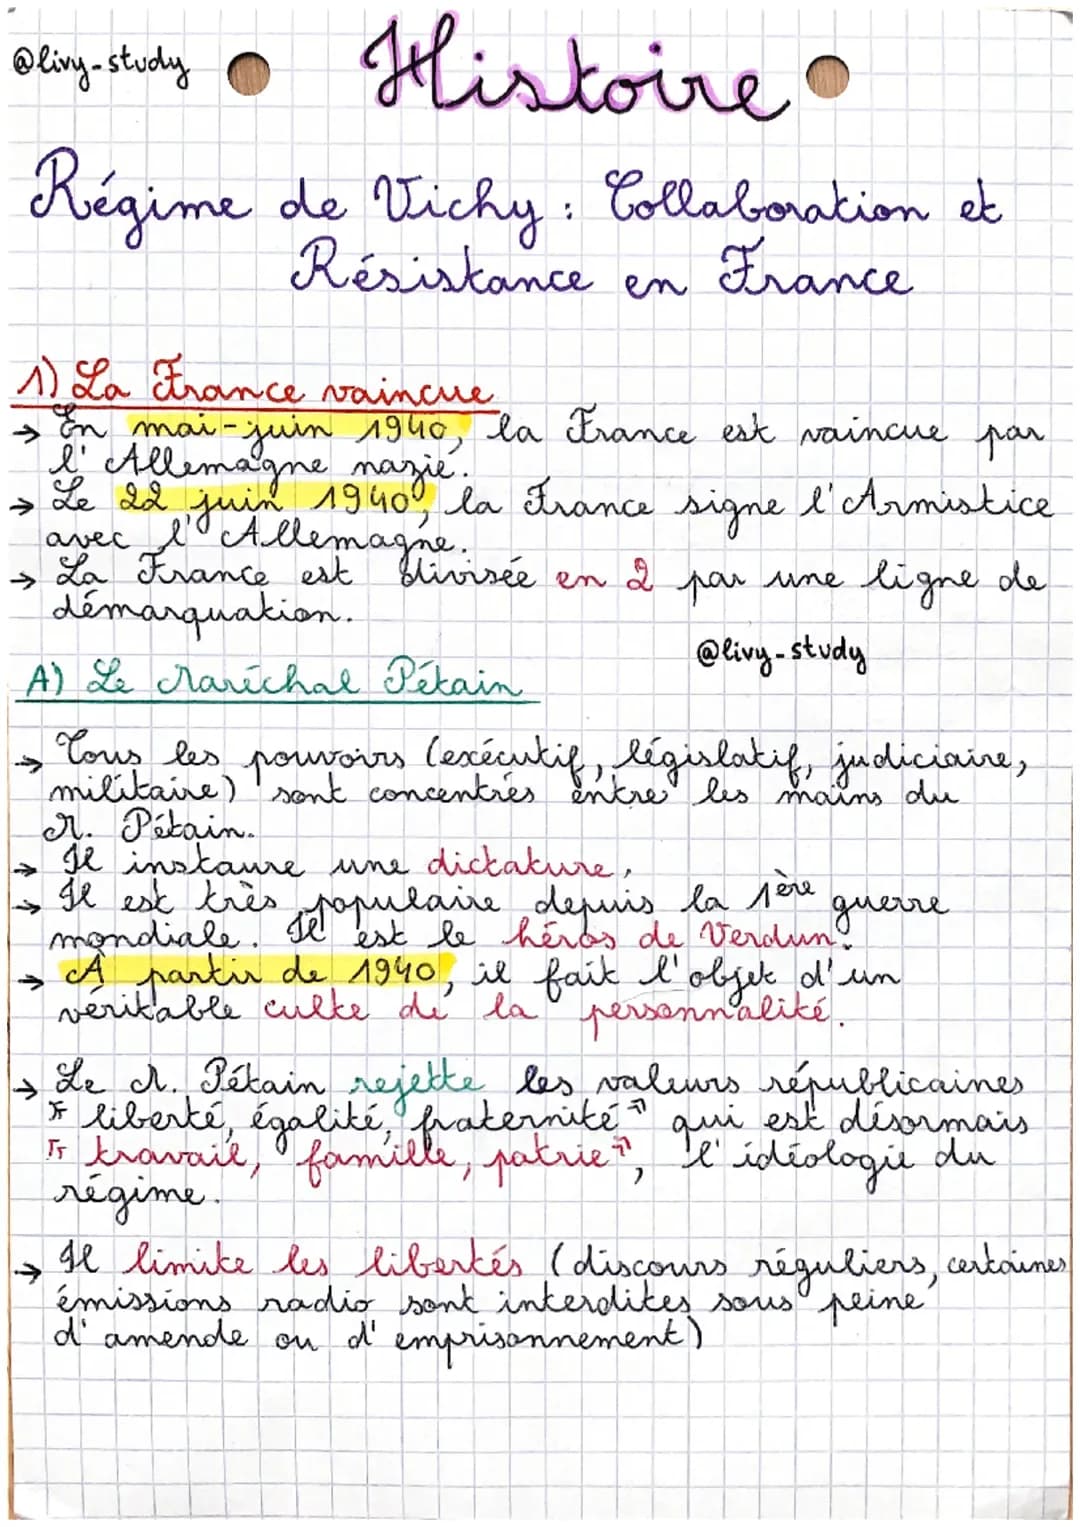 @livy-study
Histoire
Régime de Vichy : Collaboration et
Résistance en France
1) La France vaincue
→ En mai-juin 1940, la France est vaincue par
l'Allemagne nazie.
→ Le 22 juin 1940, la France signe l'Armistice
avec l'Allemagne.
→ La France est divisée en 2 par une ligne de
démarquation.
@livy-study
A) Le Maréchal Pétain
→ Tous les pouvoirs (exécutif, législatif, judiciaire,
militaire) sont concentrés entre les mains du
M. Pétain.
→ Il instaure une dictature.
→ Il est très populaire depuis la 1ère guerre
mondiale. Il est le héros de Verdun.
→ À partir de 1940, il fait l'objet d'un
véritable culte de la personnalité.
→ Le M. Pétain rejette les valeurs républicaines
"liberté, égalité, fraternité" qui est désormais
"travail, famille, patrie", l'idéologie du
régime.
→ Il limite les libertés (discours réguliers, certaines
émissions radio sont interdites sous peine
d'amende ou d'emprisonnement)